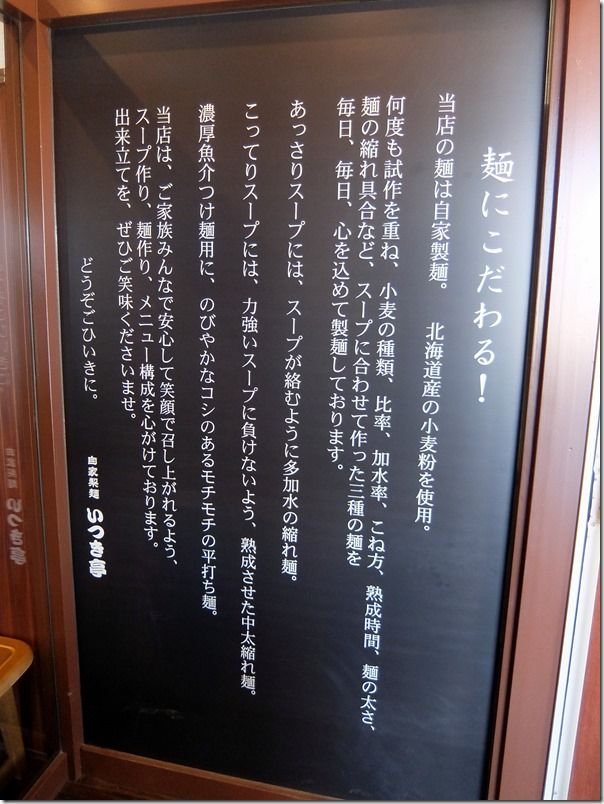 麺にこだわる！
当店の麺は自家製麺。　北海道産の小麦粉を使用。
何度も試作を重ね、小麦の種類、比率、加水率、こね方、熟成時間、麺の太さ、
麺の縮れ具合など、スープに合わせて作った三種の麺を
毎日、毎日、心を込めて製麺しております。
あっさりスープには、スープが絡むように多加水の縮れ麺。
こってりスープには、力強いスープに負けないよう、熟成させた中太縮れ麺。
濃厚魚介つけ麺用に、のびやかなコシのあるモチモチの平打ち麺。
当店は、ご家族みんなで安心して笑顔で召し上がれるよう、
スープ作り、麺作り、メニュー構成を心がけております。
出来立てを、ぜひご笑味くださいませ。
どうぞごひいきに。
自家製麺 いつき亭